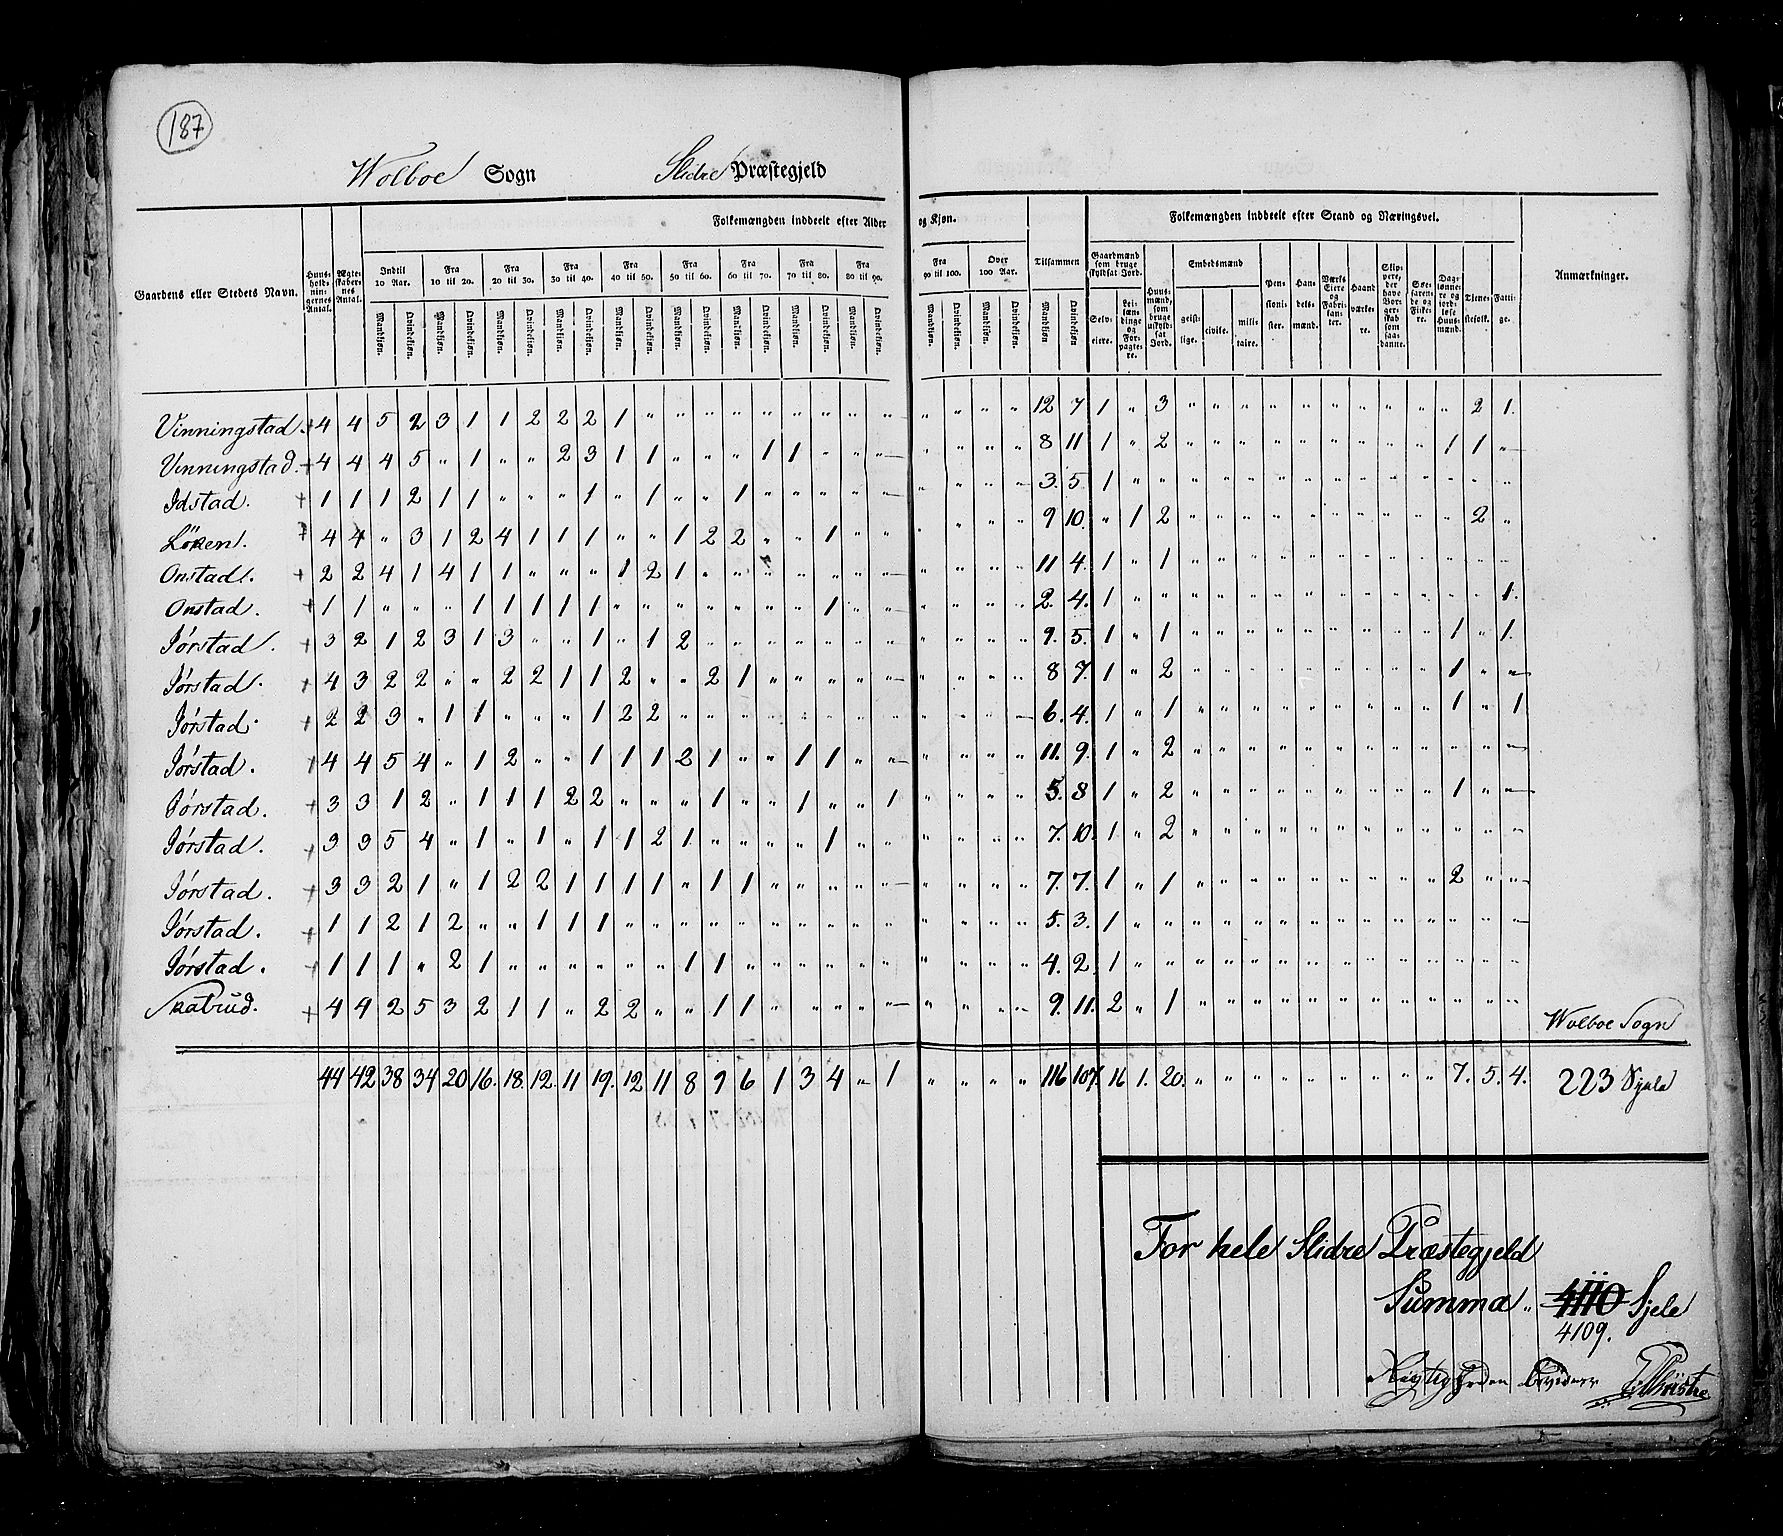 187
Wolboe Sogn Slidre Præstegjeld
Folkemængden inddeelt efter Alder og Kjøn. Folkemængden inddeelt efter Stand og Næringsvei.
Gaardens eller Stedets Navn. Huusholdningernes Antal. Ægteskabernes Antal. Indtil 10 Aar. Fra 10 til 20. Fra 20 til 30. Fra 30 til 40. Fra 40 til 50. Fra 50 til 60. Fra 60 til 70. Fra 70 til 80. Fra 80 til 90. Fra 90 til 100. Over 100 Aar. Tilsammen Gaardmænd som bruge skyldsat Jord. Huusmænd, som bruge uskyldsat Jord. Embedsmænd Pensionister. Handelsmænd. Værks Eiere og Fabrikanter. Haandværkere. Skippere, der have Borgerskab som saadanne. Søefarende og Fiskere. Daglønnere og jordløse Huusmænd. Tjenestefolk. Fattige. Anmærkninger.
Mandkjøn. Qvindekjøn. Mandkjøn. Qvindekjøn. Mandkjøn. Qvindekjøn. Mandkjøn. Qvindekjøn. Mandkjøn. Qvindekjøn. Mandkjøn. Qvindekjøn. Mandkjøn. Qvindekjøn. Mandkjøn. Qvindekjøn. Mandkjøn. Qvindekjøn. Mandkjøn. Qvindekjøn. Mandkjøn. Qvindekjøn. Mandkjøn Qvindekjøn Selveiere. Leilændinge og Forpagtere. geistlige. civile. militaire.
Vinningstad. + 4 4 5 2 3 1 1 2 2 2 1 " " " " " " " " " " " " " 12 7 1 " 3 " " " " " " " " " " 2 1.
Vinningstad. + 4 4 4 5 " 1 " " 2 3 1 1 " " " 1 1 " " " " " " " 8 11 1 " 2 " " " " " " " " " 1 1 "
Idstad. + 1 1 1 2 1 1 " " " 1 " 1 " " 1 " " " " " " " " " 3. 5. 1 " " " " " " " " " " " " " "
Löken. + 4 4 " 3 1 2 4 1 1 1 " " 1 2 2 " " 1 " " " " " " 9 10. " 1 2 " " " " " " " " " " 2 "
Onstad. + 2 2 4 1 4 1 1 " " " 1 2 1 " " " " " " " " " " " 11 4. 1 " 1 " " " " " " " " " " " "
Onstad. + 1 1 " " " 1 1 1 1 1 " " " " " " " 1 " " " " " " 2. 4. 1 " " " " " " " " " " " " " 1.
Jørstad. + 3 2 1 2 3 1 3 " " 1 " 1 2 " " " " " " " " " " " 9. 5. 1 " 1 " " " " " " " " " 1 " 1.
Jørstad. + 4 3 2 2 " " 2 2 1 1 2 " " 2 1 " " " " " " " " " 8 7. 1 " 2 " " " " " " " " " 1 " "
Jørstad. + 2 2 3 " 1 1 " " " 1 2 2 " " " " " " " " " " " " 6. 4. 1 " 1 " " " " " " " " " 1 " 1
Jørstad. + 4 4 5 4 " 1 2 " " 1 1 1 2 1 " " 1 1 " " " " " " 11. 9. 1 " 2 " " " " " " " " " " " "
Jørstad. + 3 3 1 2 " 1 1 1 2 2 " " " 1 " " 1 " " 1 " " " " 5. 8 1 " 2 " " " " " " " " " 1 " "
Jørstad. + 3 3 5 4 " 1 " 1 " 1 1 2 1 " " " " 1 " " " " " " 7. 10. 1 " 2 " " " " " " " " " " " "
Jørstad. + 3 3 2 1 " 1 2 2 1 1 1 1 " 1 1 " " " " " " " " " 7. 7. 1 " 1 " " " " " " " " " 2 " "
Jørstad. + 1 1 2 1 2 " " 1 1 1 " " " " " " " " " " " " " " 5. 3. 1 " " " " " " " " " " " " " "
Jørstad. + 1 1 1 " 2 1 " " " " " " 1 1 " " " " " " " " " " 4. 2. 1 " " " " " " " " " " " " " "
Skatrud. + 4 4 2 5 3 2 1 1 " 2 2 " " 1 1 " " " " " " " " " 9. 11. 2 " 1 " " " " " " " " " " " "
Wolboe Sogn
44 42 38 34 20 16. 18. 12. 11 19. 12 11 8 9 6 1 3 4 " 1 " " " " 116 107. 16 1. 20. " " " " " " " " " 7. 5. 4. 223 Sjele
For hele Slidre Præstegjeld
Summa " 4110 Sjele
4109.